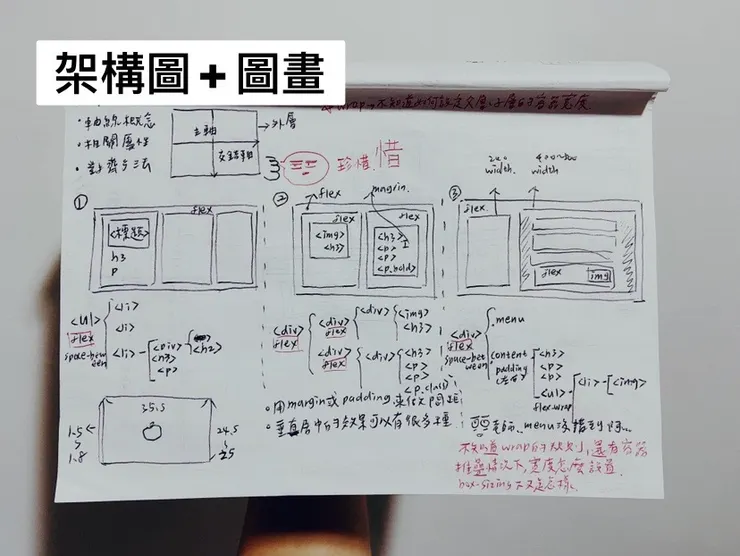 架構圖+圖畫
wrap→不知道如何設定父層、子層的容器寬度
・軸線概念
・相關屬性
・對齊方法
主軸
交錯軸
→外層
珍惜.惜
①
flex
<標題>
h3
p
<ul>
flex
space-between
<li>
<li>
<li>
<div>
<h3>
<p>
<h2>
②
flex
margin.
flex
<img>
<h3>
flex
<h3>
<p>
<p>
<p.bold>
<div>
flex
<div>
flex
<div>
<img>
<h3>
<div>
flex
<div>
<h3>
<p>
<p>
<p.class>
。用margin或padding來做間距
。垂直居中的效果可以有很多種
③
200
width.
width
flex.
flex
img
<div>
flex
space-between
.menu
content
padding
(左右)
<h3>
<p>
<p>
<ul>
flex.wrap
<li>
<img>
35.5
1.5
1.8
24.5
25
老師、menu
不知道wrap的規則,還有容器
推疊情況下,寬度怎麼設置.
box-sizing下又是怎樣.